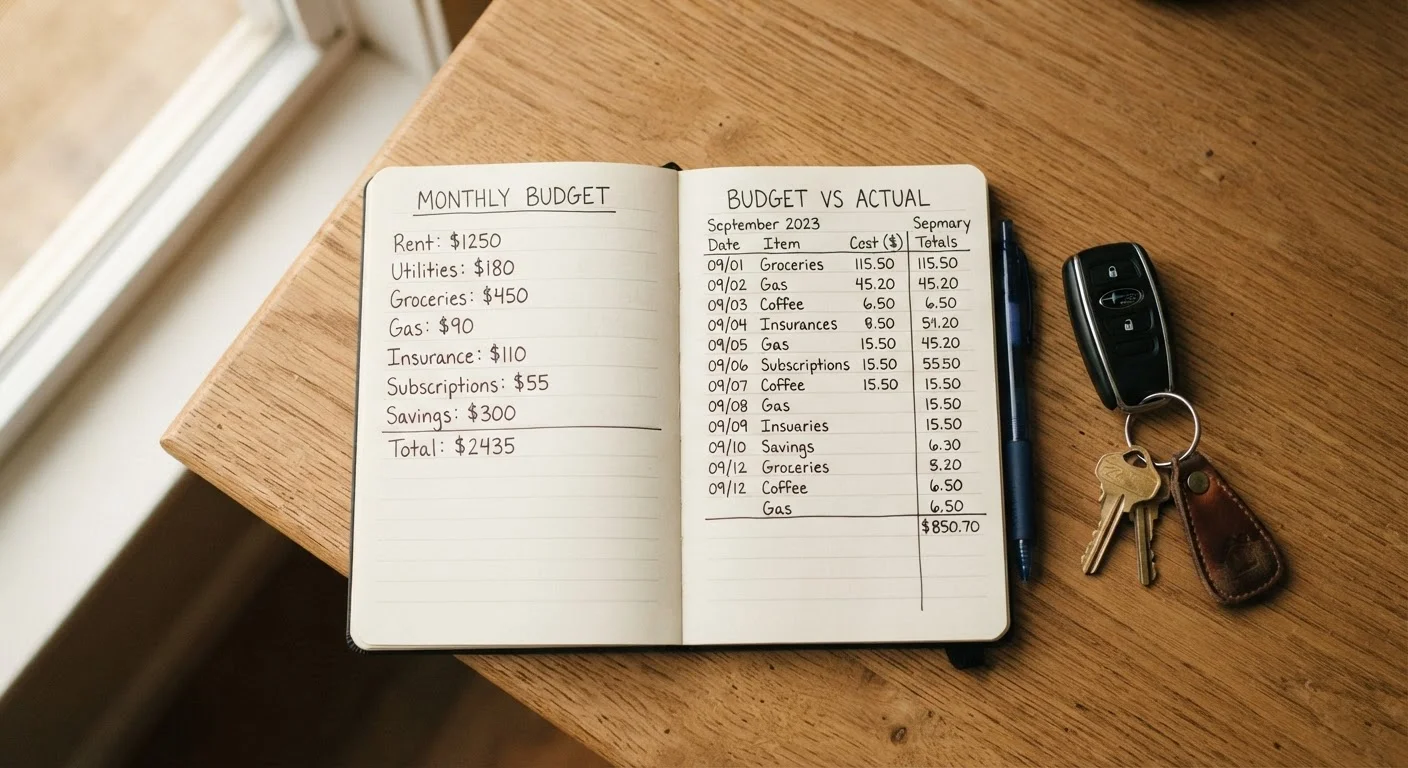 MONTHLY BUDGET
Rent: $1250
Utilities: $180
Groceries: $450
Gas: $90
Insurance: $110
Subscriptions: $55
Savings: $300
Total: $2435
BUDGET VS ACTUAL
September 2023 Sepmary
Date Item Cost ($) Totals
09/01 Groceries 115.50 115.50
09/02 Gas 45.20 45.20
09/03 Coffee 6.50 6.50
09/04 Insurances 8.50 54.20
09/05 Gas 15.50 45.20
09/06 Subscriptions 15.50 5550
09/07 Coffee 15.50 15.50
09/08 Gas 15.50
09/09 Insuaries 15.50
09/10 Savings 6.30
09/12 Groceries 8.20
09/12 Coffee 6.50
Gas 6.50
$850.70